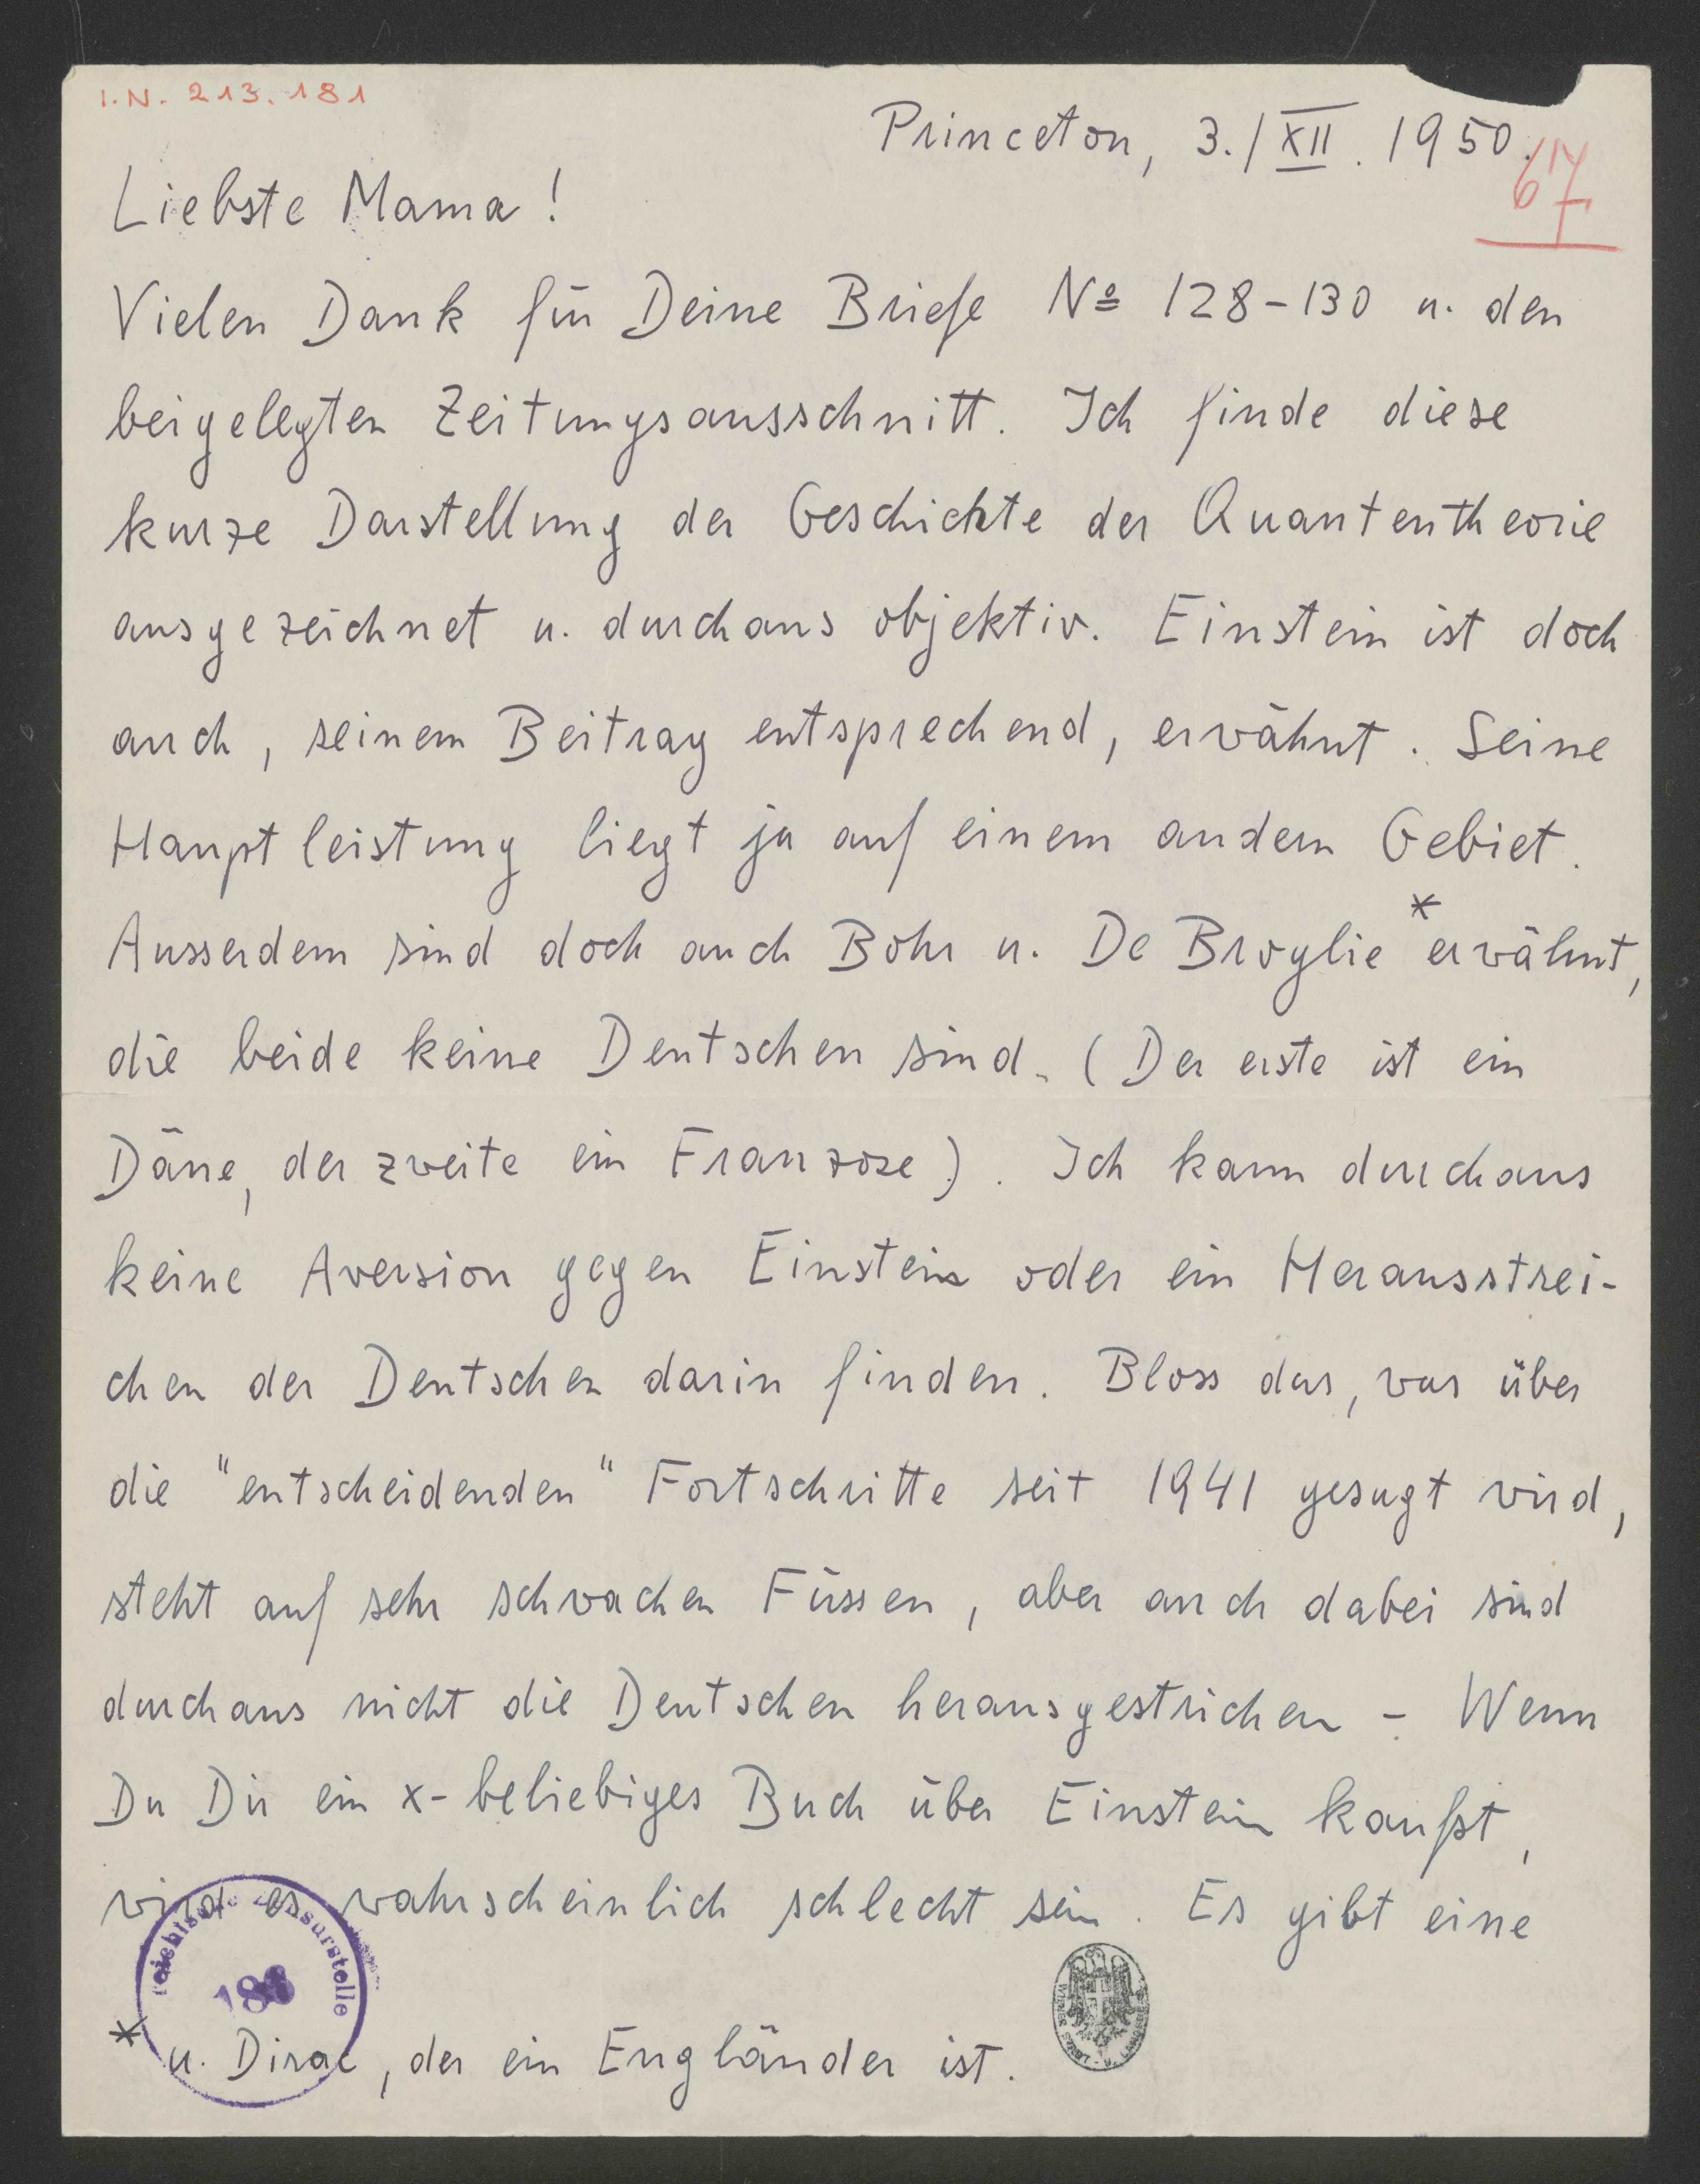 I.N. 213.181
Princeton, 3./XII. 1950.
67
Liebste Mama!
Vielen Dank für Deine Briefe Nº 128-130 u. den
beigelegten Zeitungsausschnitt. Ich finde diese
kurze Darstellung der Geschichte der Quantentheorie
ausgezeichnet u. durchaus objektiv. Einstein ist doch
auch, seinem Beitrag entsprechend, erwähnt. Seine
Hauptleistung liegt ja auf einem andern Gebiet.
Ausserdem sind doch auch Bohr u. De Broglie * erwähnt,
die beide keine Deutschen sind. (Der erste ist ein
Däne, der zweite ein Franzose). Ich kann durchaus
keine Aversion gegen Einstein oder ein Herausstrei-
chen der Deutschen darin finden. Bloss das, was über
die "entscheidenden" Fortschritte seit 1941 gesagt wird,
steht auf sehr schwachen Füssen, aber auch dabei sind
durchaus nicht die Deutschen herausgestrichen - Wenn
Du Dir ein x-beliebiges Buch über Einstein kaufst,
wird es wahrscheinlich schlecht sein. Es gibt eine
Zensurstelle
* u. Dirac, der ein Engländer ist.